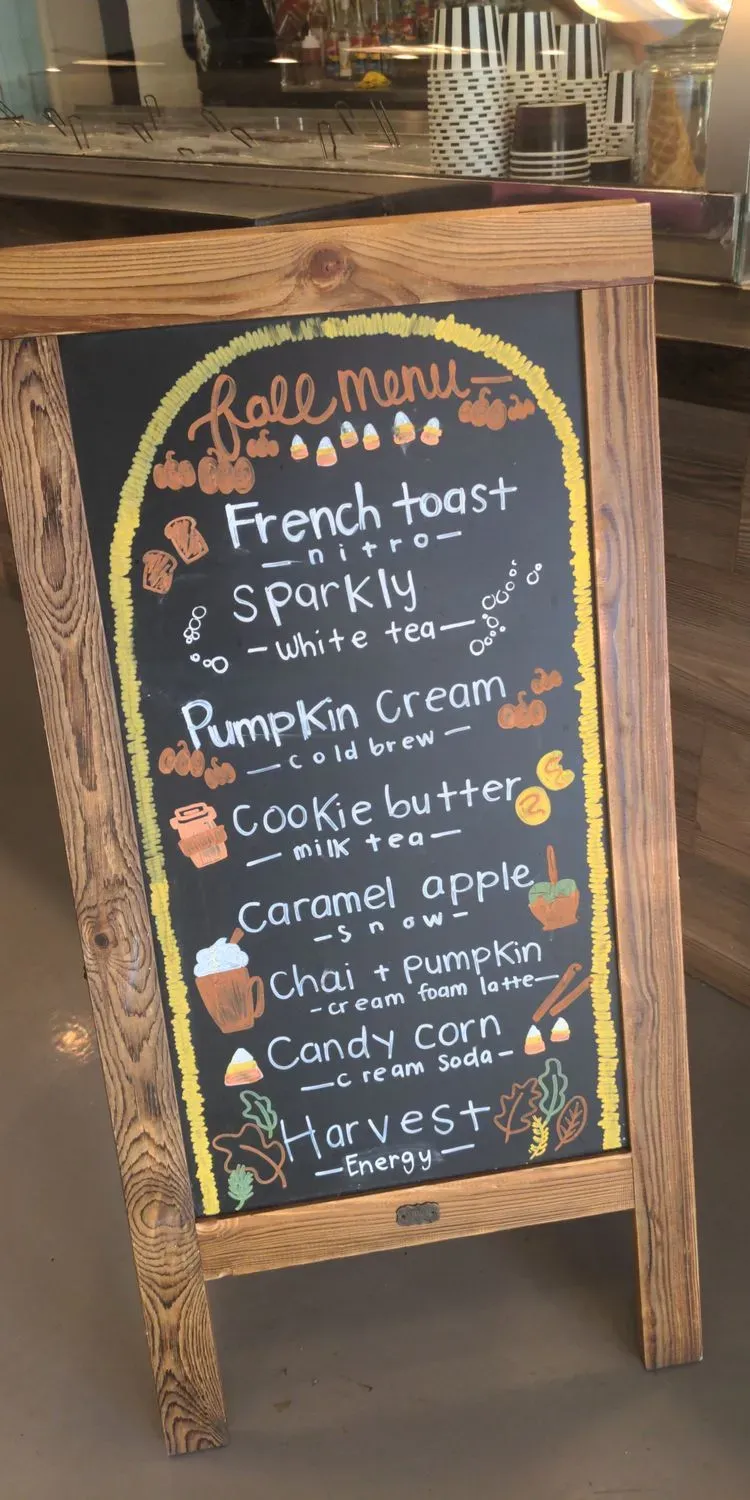 fall menu
French toast
—nitro—
Sparkly
-white tea—
Pumpkin Cream
—cold brew—
Cookie butter
—milk tea—
Caramel apple
-snow-
Chai + Pumpkin
-cream foam latte-
Candy corn
—cream soda-
Harvest
—Energy—